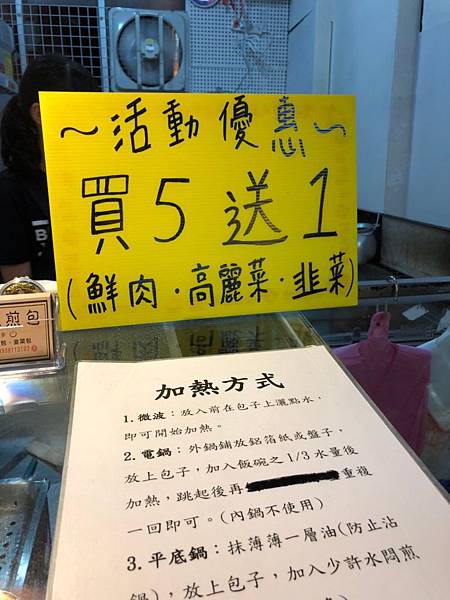 ～活動優惠～
買5送1
(鮮肉．高麗菜．韭菜)
煎包
包、韭菜包
加熱方式
1.微波：放入前在包子上灑點水，
即可開始加熱。
2.電鍋：外鍋鋪放鋁箔紙或盤子，
放上包子，加入飯碗之1/3水量後
加熱，跳起後再 重複
一回即可。(內鍋不使用)
3.平底鍋：抹薄薄一層油(防止沾
鍋)，放上包子，加入少許水悶煎